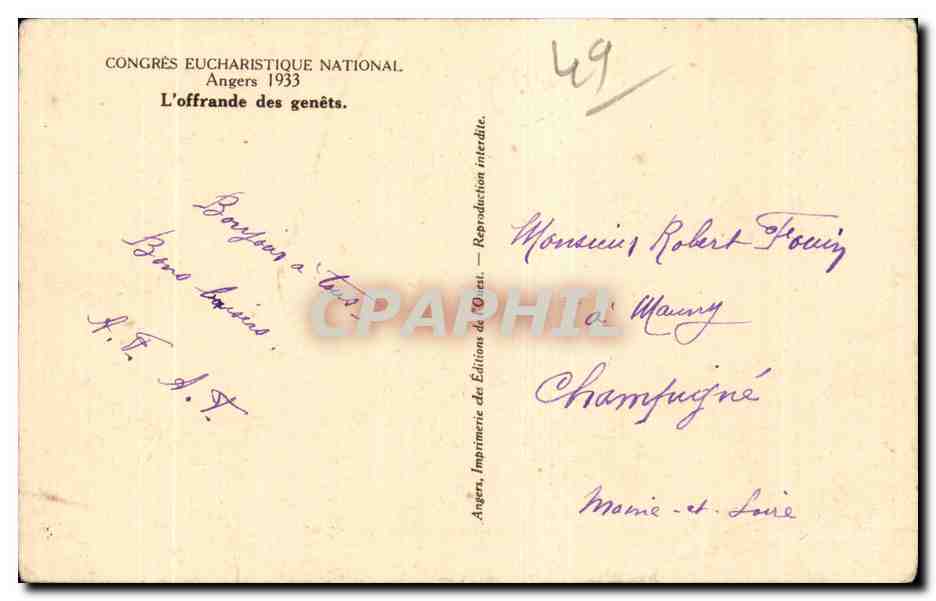 CONGRÈS EUCHARISTIQUE NATIONAL.
Angers 1933
L'offrande des genêts.
49
Bonjour à tous.
Bons baisers.
A. F. A. F.
Angers, Imprimerie des Editions de l'Ouest. — Reproduction interdite.
Monsieur Robert Fouin
à
Champigné
Maine-et-Loire
CPAPHIL